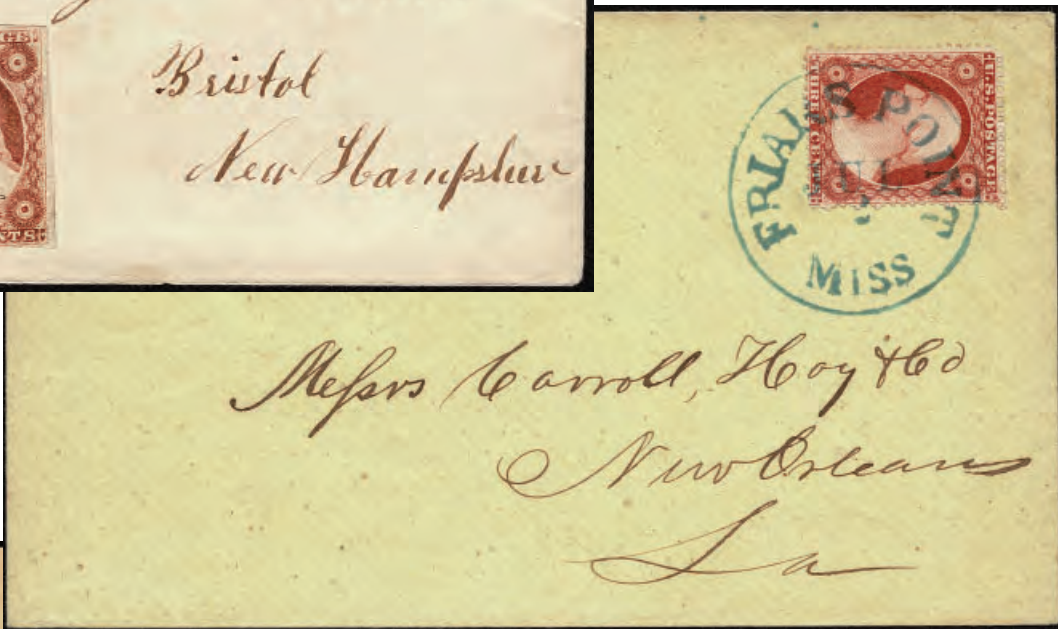 Bristol
New Hampshire
U.S. POSTAGE.
THREE CENTS
FRIARS POINT
JUL
MISS
Messrs Carroll, Hoy & Co
New Orleans
La